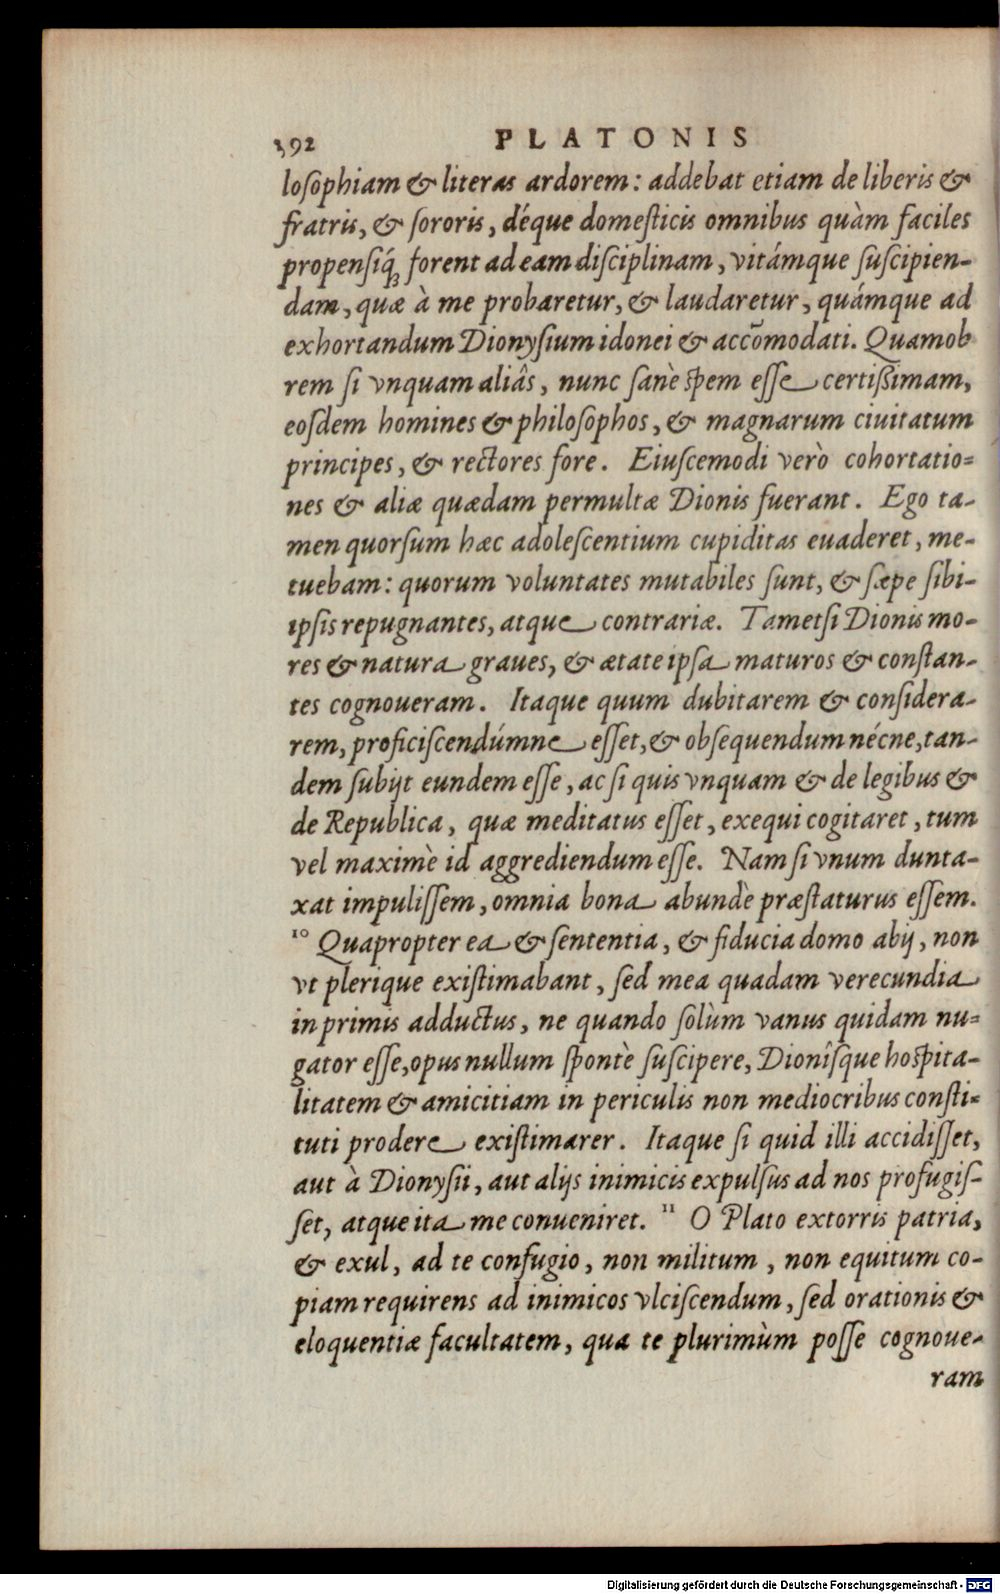 392 PLATONIS
losophiam & literas ardorem: addebat etiam de liberis &
fratris, & sororis, déque domesticis omnibus quàm faciles
propensíq; forent ad eam disciplinam, vitámque suscipien-
dam, quæ à me probaretur, & laudaretur, quámque ad
exhortandum Dionysium idonei & accōmodati. Quamob
rem si vnquam aliâs, nunc sanè spem esse certißimam,
eosdem homines & philosophos, & magnarum ciuitatum
principes, & rectores fore. Eiuscemodi verò cohortatio=
nes & aliæ quædam permultæ Dionis fuerant. Ego ta-
men quorsum hæc adolescentium cupiditas euaderet, me-
tuebam: quorum voluntates mutabiles sunt, & sæpe sibi-
ipsis repugnantes, atque contrariæ. Tametsi Dionis mo-
res & natura graues, & ætate ipsa maturos & constan-
tes cognoueram. Itaque quum dubitarem & considera-
rem, proficiscendúmne esset, & obsequendum nécne, tan-
dem subijt eundem esse, ac si quis vnquam & de legibus &
de Republica, quæ meditatus esset, exequi cogitaret, tum
vel maximè id aggrediendum esse. Nam si vnum dunta-
xat impulissem, omnia bona abundè præstaturus essem.
10 Quapropter ea & sententia, & fiducia domo abij, non
vt plerique existimabant, sed mea quadam verecundia
in primis adductus, ne quando solùm vanus quidam nu=
gator esse, opus nullum spontè suscipere, Dionîsque hospita-
litatem & amicitiam in periculis non mediocribus consti=
tuti prodere existimarer. Itaque si quid illi accidisset,
aut à Dionysii, aut alijs inimicis expulsus ad nos profugis-
set, atque ita me conueniret. 11 O Plato extorris patria,
& exul, ad te confugio, non militum, non equitum co-
piam requirens ad inimicos vlciscendum, sed orationis &
eloquentiæ facultatem, qua te plurimùm posse cognoue-
ram
Digitalisierung gefördert durch die Deutsche Forschungsgemeinschaft - DFG